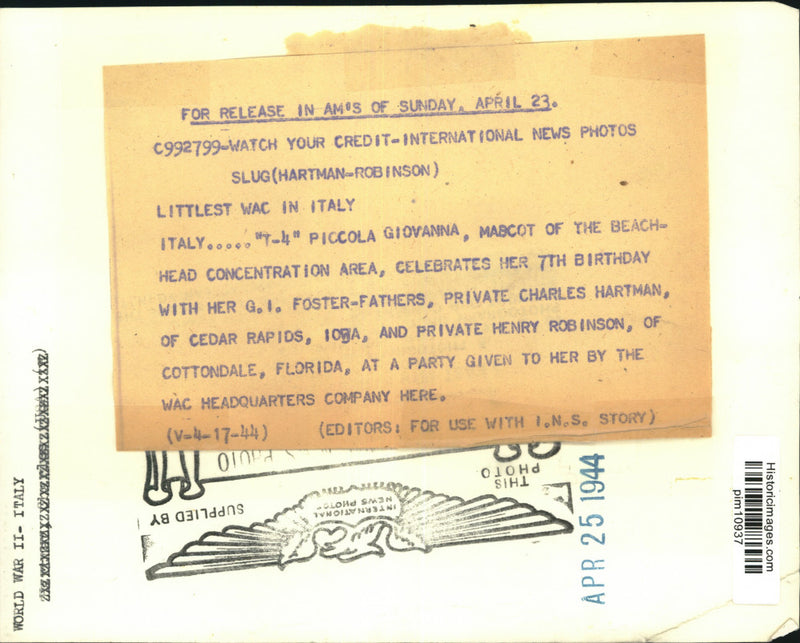 FOR RELEASE IN AM'S OF SUNDAY, APRIL 23.
C992799-WATCH YOUR CREDIT-INTERNATIONAL NEWS PHOTOS
SLUG(HARTMAN-ROBINSON)
LITTLEST WAC IN ITALY
ITALY....."T-4" PICCOLA GIOVANNA, MASCOT OF THE BEACH-
HEAD CONCENTRATION AREA, CELEBRATES HER 7TH BIRTHDAY
WITH HER G.I. FOSTER-FATHERS, PRIVATE CHARLES HARTMAN,
OF CEDAR RAPIDS, IOWA, AND PRIVATE HENRY ROBINSON, OF
COTTONDALE, FLORIDA, AT A PARTY GIVEN TO HER BY THE
WAC HEADQUARTERS COMPANY HERE.
(V-4-17-44) (EDITORS: FOR USE WITH I.N.S. STORY)
THIS
PHOTO
SUPPLIED BY
INTERNATIONAL
NEWS PHOTOS
APR 25 1944
WORLD WAR II- ITALY
Historicimages.com
pim10937